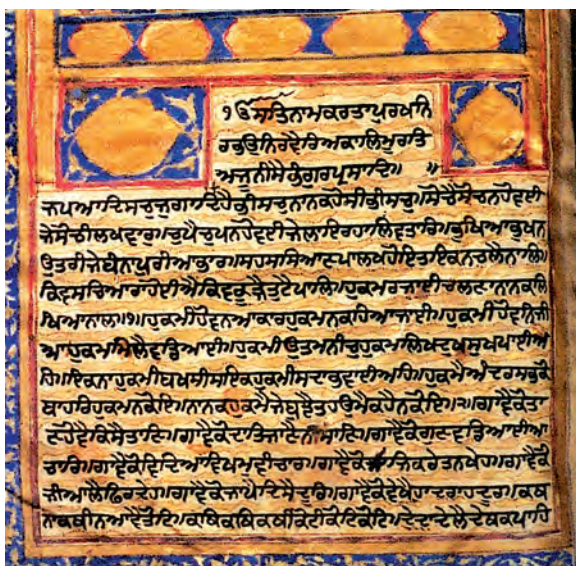 ੴਸਤਿਨਾਮਕਰਤਾਪੁਰਖਨਿ
ਰਭਉਨਿਰਵੈਰਿਅਕਾਲਿਮੂਰਤਿ
ਅਜੂਨੀਸੈਭੰਗੁਰਪ੍ਰਸਾਦਿ॥ ॥
ਜਪਆਦਿਸਚੁਜੁਗਾਦਿਹੈਭੀਸਚੁਨਾਨਕਹੋਸੀਭੀਸਚੁ॥ਸੋਚੈਸੋਚਨਹੋਵਈ
ਜੇਸੋਚੀਲਖਵਾਰ॥ਚੁਪੈਚੁਪਨਹੋਵਈਜੇਲਾਇਰਹਾਲਿਵਤਾਰ॥ਭੁਖਿਆਭੁਖਨ
ਉਤਰੀਜੇਬੰਨਾਪੁਰੀਆਭਾਰ॥ਸਹਸਸਿਆਣਪਾਲਖਹੋਇਤਇਕਨਚਲੈਨਾਲਿ॥
ਕਿਵਸਚਿਆਰਾਹੋਈਐਕਿਵਕੂੜੈਤੁਟੈਪਾਲਿ॥ਹੁਕਮਰਜਾਈਚਲਣਾਨਾਨਕਲਿ
ਖਿਆਨਾਲ॥੧॥ਹੁਕਮੀਹੋਵਨਆਕਾਰਹੁਕਮਨਕਹਿਆਜਾਈ॥ਹੁਕਮੀਹੋਵਨਿਜੀ
ਆਹੁਕਮਿਮਿਲੈਵਡਿਆਈ॥ਹੁਕਮੀਉਤਮਨੀਚੁਹੁਕਮਿਲਿਖਦੁਖਸੁਖਪਾਈਅ
ਹਿ॥ਇਕਨਾਹੁਕਮੀਬਖਸੀਸਇਕਹੁਕਮੀਸਦਾਭਵਾਈਅਹਿ॥ਹੁਕਮੈਅੰਦਰਸਭਕੋ
ਬਾਹਰਿਹੁਕਮਨਕੋਇ॥ਨਾਨਕਹੁਕਮੈਜੇਬੁਝੈਤਹਉਮੈਕਹੈਨਕੋਇ॥੨॥ਗਾਵੈਕੋਤਾ
ਣਹੋਵੈਕਿਸੈਤਾਣਿ॥ਗਾਵੈਕੋਦਾਤਿਜਾਣੈਨੀਸਾਣਿ॥ਗਾਵੈਕੋਗੁਣਵਡਿਆਈਆ
ਚਾਰ॥ਗਾਵੈਕੋਵਿਦਿਆਵਿਖਮੁਵੀਚਾਰ॥ਗਾਵੈਕੋਸਾਜਿਕਰੇਤਨਖੇਹ॥ਗਾਵੈਕੋ
ਜੀਆਲੈਫਿਰਦੇਹ॥ਗਾਵੈਕੋਜਾਪੈਦਿਸੈਦੂਰਿ॥ਗਾਵੈਕੋਵੇਖੈਹਾਦਰਾਹਦੂਰ॥ਕਥ
ਨਾਕਥੀਨਆਵੈਤੋਟਿ॥ਕਥਿਕਥਿਕਥੀਕੋਟੀਕੋਟਿਕੋਟਿ॥ਦੇਦਾਦੇਲੈਦੇਥਕਪਾਹਿ